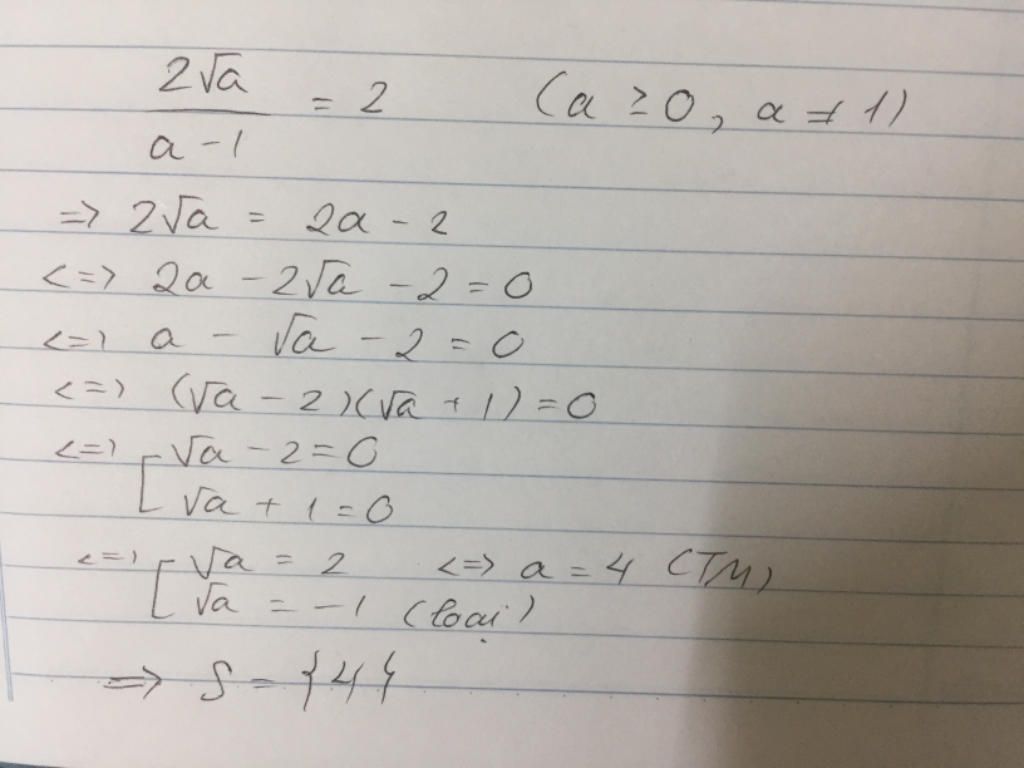 2√a / (a - 1) = 2 (a ≥ 0, a ≠ 1)
=> 2√a = 2a - 2
<=> 2a - 2√a - 2 = 0
<=> a - √a - 2 = 0
<=> (√a - 2)(√a + 1) = 0
<=> [ √a - 2 = 0
√a + 1 = 0
<=> [ √a = 2 <=> a = 4 (TM)
√a = -1 (loại)
=> S = {4}